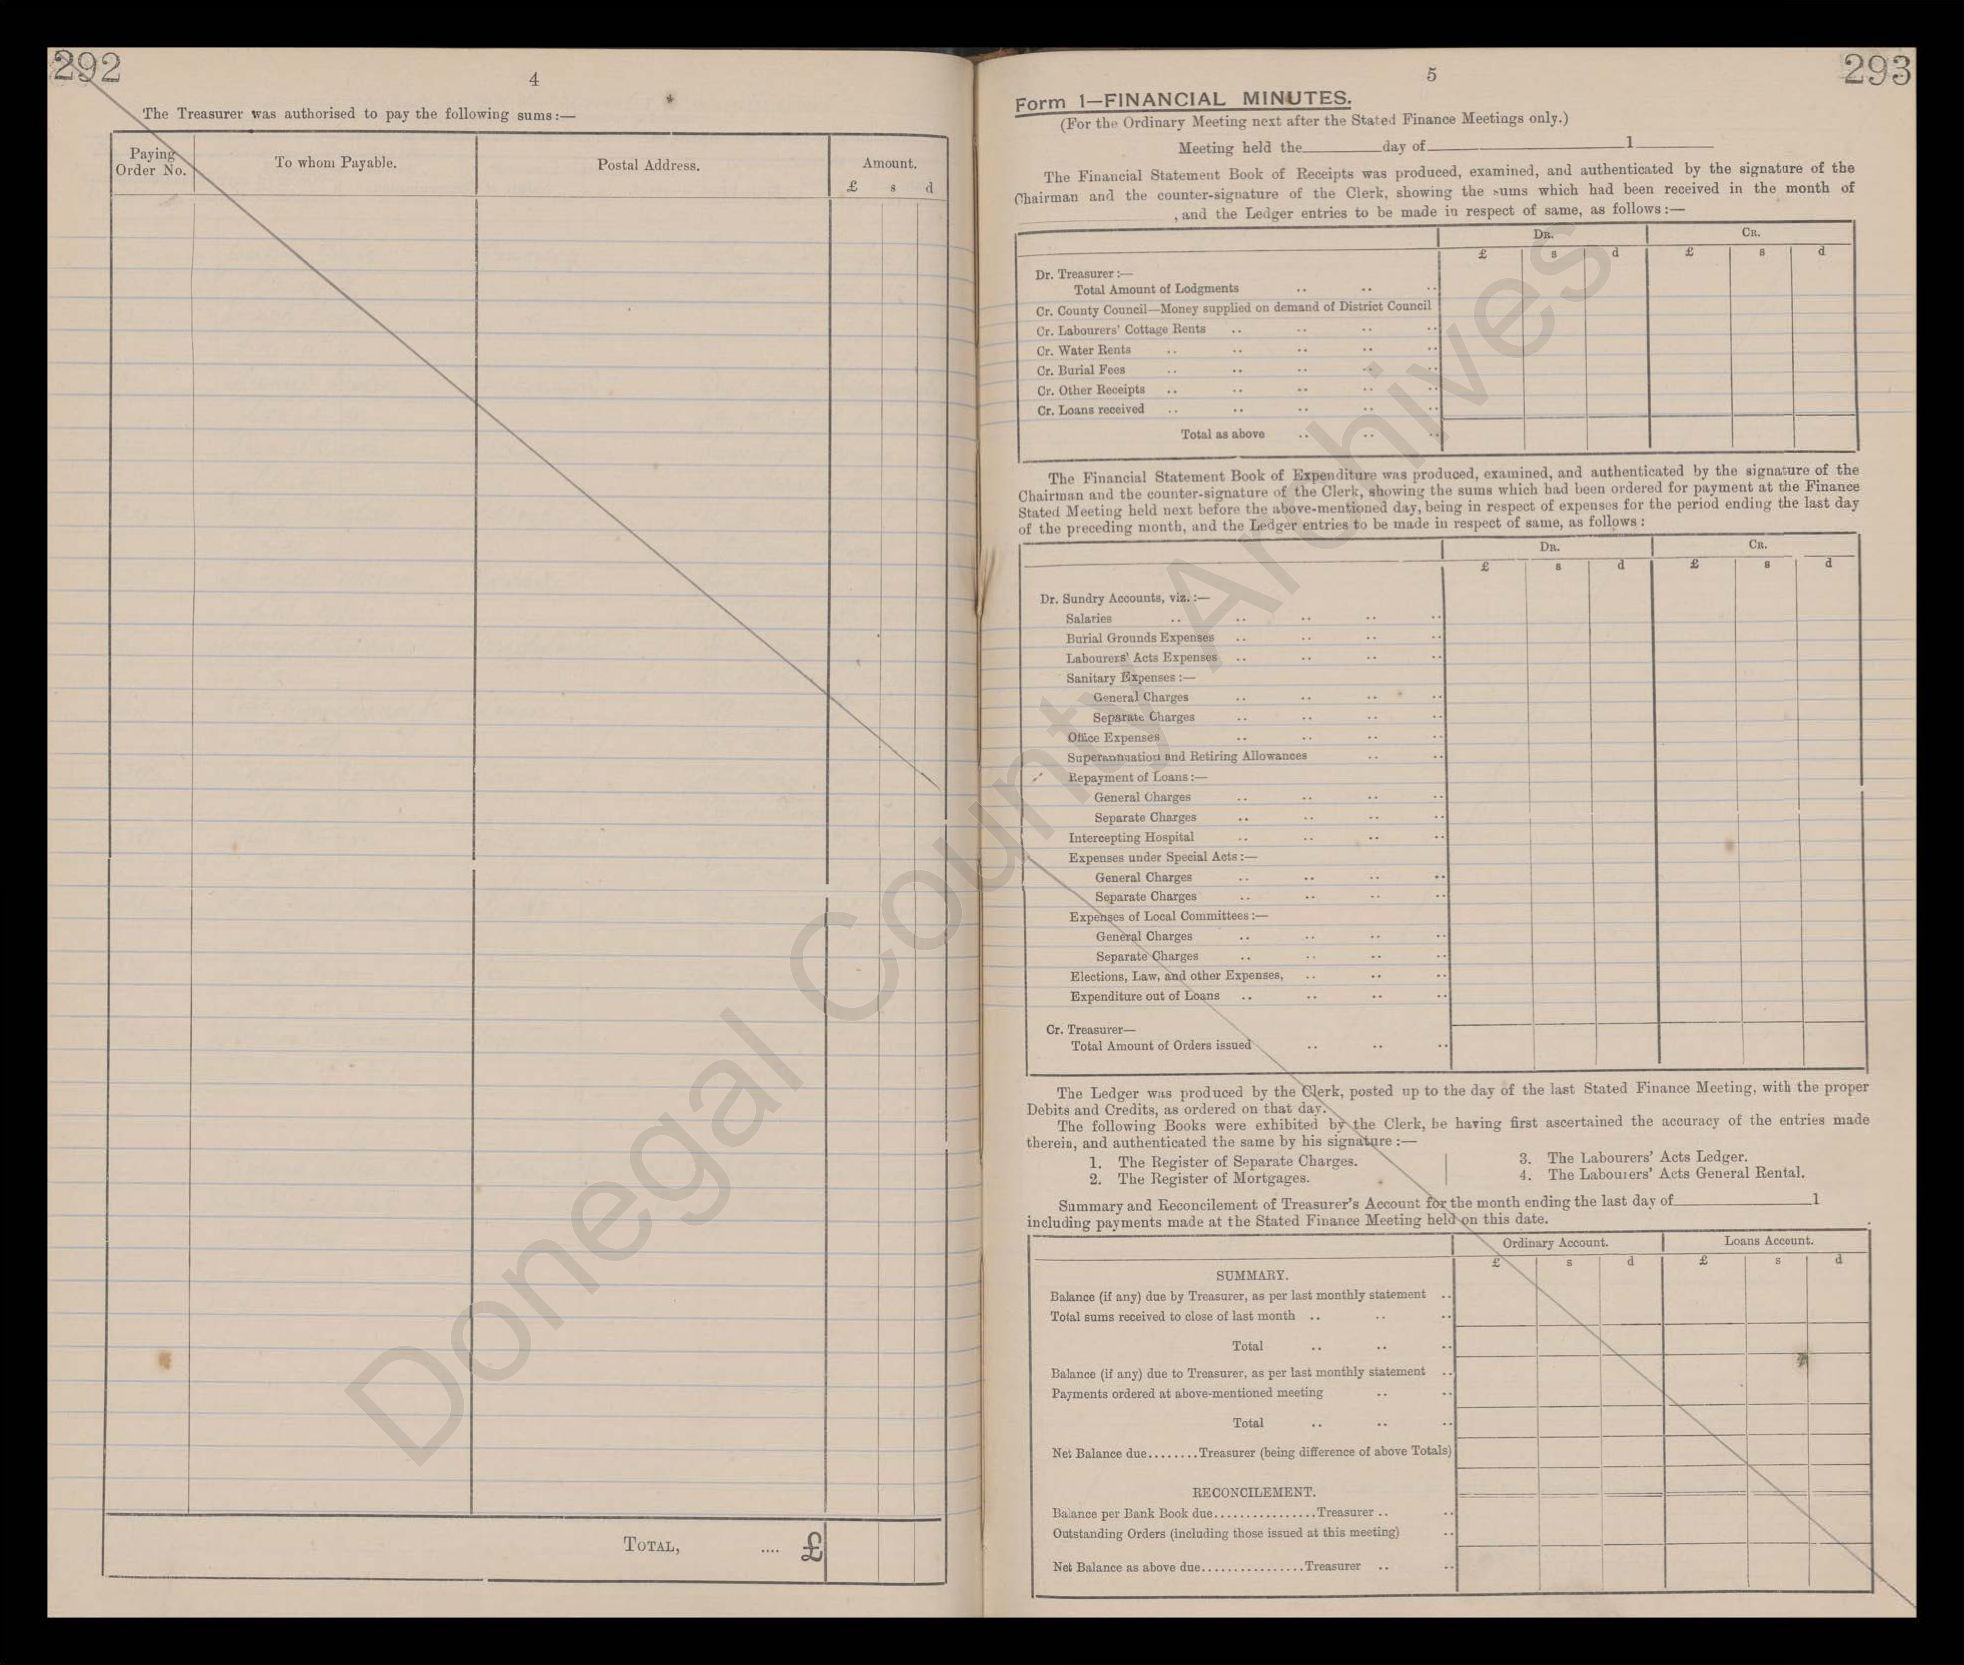 292
4
The Treasurer was authorised to pay the following sums:—
Paying Order No. To whom Payable. Postal Address. Amount.
£ s d
TOTAL, .... £
293
5
Form 1—FINANCIAL MINUTES.
(For the Ordinary Meeting next after the Stated Finance Meetings only.)
Meeting held the________day of____________________1________
The Financial Statement Book of Receipts was produced, examined, and authenticated by the signature of the
Chairman and the counter-signature of the Clerk, showing the sums which had been received in the month of
, and the Ledger entries to be made in respect of same, as follows:—
DR. CR.
£ s d £ s d
Dr. Treasurer:—
Total Amount of Lodgments .. .. ..
Cr. County Council—Money supplied on demand of District Council
Cr. Labourers' Cottage Rents .. .. .. ..
Cr. Water Rents .. .. .. .. ..
Cr. Burial Fees .. .. .. .. ..
Cr. Other Receipts .. .. .. .. ..
Cr. Loans received .. .. .. .. ..
Total as above .. .. ..
The Financial Statement Book of Expenditure was produced, examined, and authenticated by the signature of the
Chairman and the counter-signature of the Clerk, showing the sums which had been ordered for payment at the Finance
Stated Meeting held next before the above-mentioned day, being in respect of expenses for the period ending the last day
of the preceding month, and the Ledger entries to be made in respect of same, as follows:
DR. CR.
£ s d £ s d
Dr. Sundry Accounts, viz.:—
Salaries .. .. .. .. ..
Burial Grounds Expenses .. .. .. ..
Labourers' Acts Expenses .. .. .. ..
Sanitary Expenses:—
General Charges .. .. .. ..
Separate Charges .. .. .. ..
Office Expenses .. .. .. ..
Superannuation and Retiring Allowances .. ..
Repayment of Loans:—
General Charges .. .. .. ..
Separate Charges .. .. .. ..
Intercepting Hospital .. .. .. ..
Expenses under Special Acts:—
General Charges .. .. .. ..
Separate Charges .. .. .. ..
Expenses of Local Committees:—
General Charges .. .. .. ..
Separate Charges .. .. .. ..
Elections, Law, and other Expenses, .. .. ..
Expenditure out of Loans .. .. .. ..
Cr. Treasurer—
Total Amount of Orders issued .. .. ..
The Ledger was produced by the Clerk, posted up to the day of the last Stated Finance Meeting, with the proper
Debits and Credits, as ordered on that day.
The following Books were exhibited by the Clerk, he having first ascertained the accuracy of the entries made
therein, and authenticated the same by his signature:—
1. The Register of Separate Charges. 3. The Labourers' Acts Ledger.
2. The Register of Mortgages. 4. The Labourers' Acts General Rental.
Summary and Reconcilement of Treasurer's Account for the month ending the last day of______________1
including payments made at the Stated Finance Meeting held on this date.
Ordinary Account. Loans Account.
£ s d £ s d
SUMMARY.
Balance (if any) due by Treasurer, as per last monthly statement ..
Total sums received to close of last month .. .. ..
Total .. .. ..
Balance (if any) due to Treasurer, as per last monthly statement ..
Payments ordered at above-mentioned meeting .. ..
Total .. .. ..
Net Balance due........Treasurer (being difference of above Totals)
RECONCILEMENT.
Balance per Bank Book due................Treasurer .. ..
Outstanding Orders (including those issued at this meeting) ..
Net Balance as above due................Treasurer .. ..
Donegal County Archives